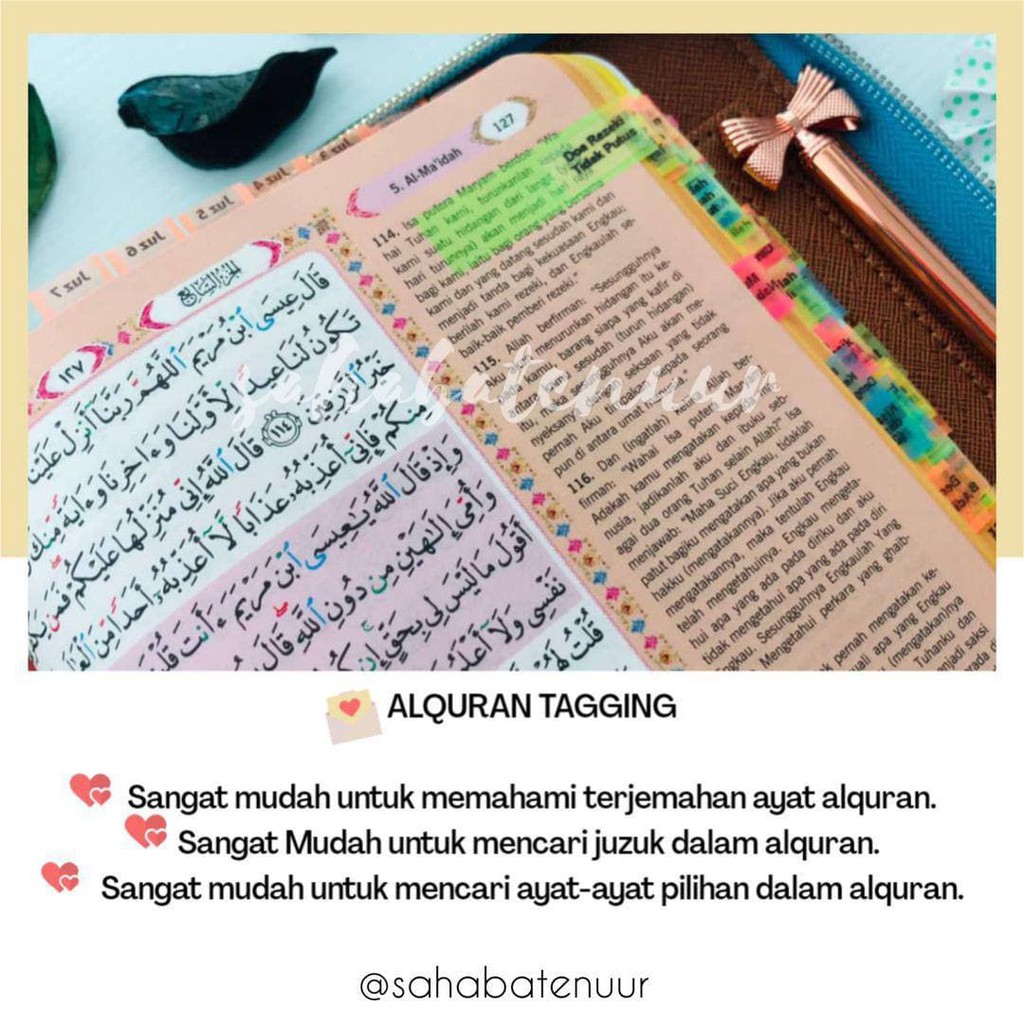 Juz 3
Juz 4
Juz 5
Juz 6
Juz 7
5. Al-Ma'idah
127
Doa Rezeki
Tidak Putus
الجزء السابع
١٢٧
قَالَ عِيسَى ٱبْنُ مَرْيَمَ ٱللَّهُمَّ رَبَّنَآ أَنزِلْ عَلَيْنَا
تَكُونُ لَنَا عِيدًا لِّأَوَّلِنَا وَءَاخِرِنَا وَءَايَةً مِّنكَ
خَيْرُ ٱلرَّٰزِقِينَ ١١٤ قَالَ ٱللَّهُ إِنِّى مُنَزِّلُهَا عَلَيْكُمْ فَمَن
مِنكُمْ فَإِنِّىٓ أُعَذِّبُهُۥ عَذَابًا لَّآ أُعَذِّبُهُۥٓ أَحَدًا مِّنَ
وَإِذْ قَالَ ٱللَّهُ يَٰعِيسَى ٱبْنَ مَرْيَمَ ءَأَنتَ قُلْتَ
وَأُمِّىَ إِلَٰهَيْنِ مِن دُونِ ٱللَّهِ قَالَ
أَقُولَ مَا لَيْسَ لِى بِحَقٍّ إِن
نَفْسِى وَلَآ أَعْلَمُ
قُلْتُ لَهُمْ
114. Isa putera Maryam berdoa: "Ya
hai Tuhan kami, turunkanlah kepada
kami suatu hidangan dari langit
hari turunnya) akan menjadi hari
bagi kami, iaitu bagi orang yang bersama
kami dan yang datang sesudah kami dan
menjadi tanda bagi kekuasaan Engkau;
berilah kami rezeki, dan Engkaulah se-
baik-baik pemberi rezeki."
115. Allah berfirman: "Sesungguhnya
Aku akan menurunkan hidangan itu ke-
pada kamu, barang siapa yang kafir di
antara kamu sesudah (turun hidangan)
itu, maka sesungguhnya Aku akan me-
nyeksanya dengan seksaan yang tidak
pernah Aku timpakan kepada seorang
pun di antara umat
116. Dan (ingatlah) ketika Allah ber-
firman: "Wahai Isa putera Maryam!
Adakah kamu mengatakan kepada ma-
nusia, jadikanlah aku dan ibuku seb-
agai dua orang Tuhan selain Allah?" Isa
menjawab: "Maha Suci Engkau, tidaklah
patut bagiku mengatakan apa yang bukan
hakku (mengatakannya). Jika aku pernah
mengatakannya, maka tentulah Engkau
telah mengetahuinya. Engkau mengeta-
hui apa yang ada pada diriku dan aku
tidak mengetahui apa yang ada pada diri
Engkau. Sesungguhnya Engkaulah Yang
Mengetahui perkara yang ghaib-
pernah mengatakan ke-
uali apa yang Engkau
(mengatakan)nya
Tuhanku dan
menjadi saksi
sahabatenuur
ALQURAN TAGGING
Sangat mudah untuk memahami terjemahan ayat alquran.
Sangat Mudah untuk mencari juzuk dalam alquran.
Sangat mudah untuk mencari ayat-ayat pilihan dalam alquran.
@sahabatenuur